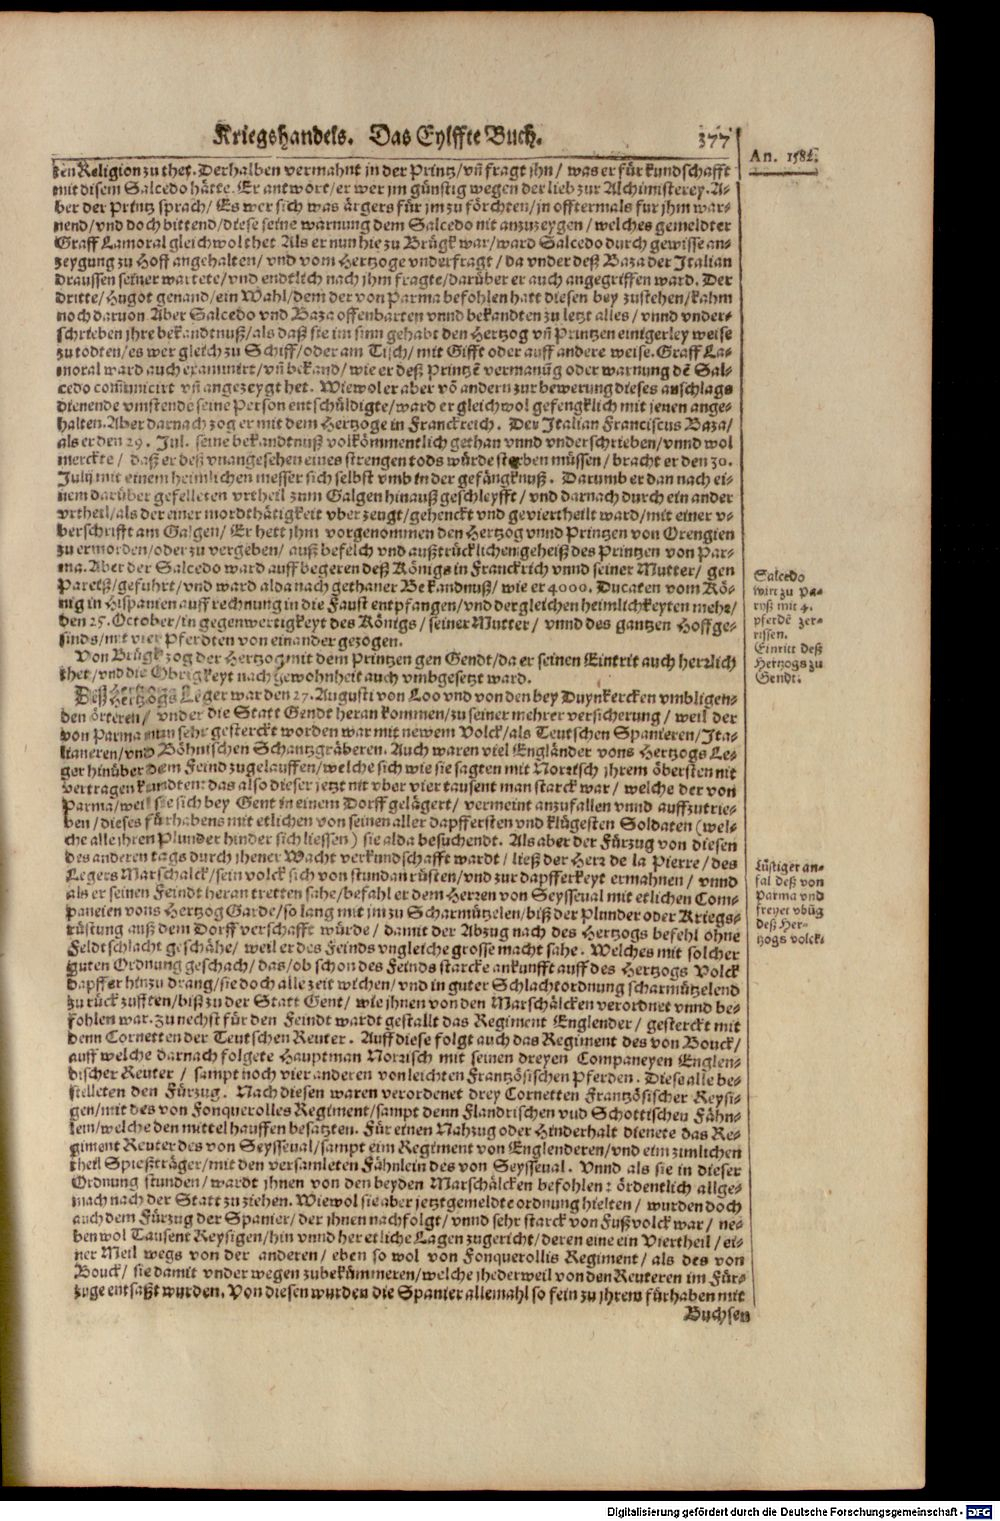 Kriegshandels. Das Eylffte Buch. 377
An. 1582.
zen Religion zu thet. Derhalben vermahnt in der Printz/ vñ fragt jhn/ was er für kundschafft
mit disem Salcedo hätte. Er antwort/ er wer jm günstig wegen der lieb zur Alchimisterey. A-
ber der Printz sprach/ Es wer sich was ärgers für jm zu förchten/ jn offtermals fur jhm war-
nend/ vnd doch bittend/ diese seine warnung dem Salcedo nit anzuzeygen/ welches gemeldter
Graff Lamoral gleichwol thet. Als er nun hie zu Brügk war/ ward Salcedo durch gewisse an-
zeygung zu Hoff angehalten/ vnd vom Hertzoge vnderfragt/ da vnder deß Baza der Italian
draussen seiner wartete/ vnd endtlich nach jhm fragte/ darüber er auch angegriffen ward. Der
dritte/ Hugot genand/ ein Wahl/ dem der von Parma befohlen hatt diesen bey zustehen/ kahm
noch daruon. Aber Salcedo vnd Baza offenbarten vnnd bekandten zu letzt alles/ vnnd vnder-
schrieben jhre bekandtnuß/ als daß sie im sinn gehabt den Hertzog vñ Printzen einigerley weise
zu tödten/ es wer gleich zu Schiff/ oder am Tisch/ mit Gifft oder auff andere weise. Graff La-
moral ward auch examinirt/ vñ bekand/ wie er deß Printzẽ vermanũg oder warnung dẽ Sal-
cedo com̃unicirt vñ angezeygt het. Wiewol er aber võ andern zur bewerung dieses anschlags
dienende vmstende seine Person entschüldigte/ ward er gleichwol gefengklich mit jenen ange-
halten. Aber darnach zog er mit dem Hertzoge in Franckreich. Der Italian Franciscus Baza/
als er den 29. Jul. seine bekandtnuß volkömmentlich gethan vnnd vnderschrieben/ vnnd wol
merckte/ daß er deß vnangesehen eines strengen tods würde sterben müssen/ bracht er den 30.
Julij mit einem heimlichen messer sich selbst vmb in der gefängknuß. Darumb er dan nach ei-
nem darüber gefelleten vrtheil zum Galgen hinauß geschleyfft/ vnd darnach durch ein ander
vrtheil/ als der einer mordthätigkeit vberzeugt/ gehenckt vnd geviertheilt ward/ mit einer v-
berschrifft am Galgen/ Er hett jhm vorgenommen den Hertzog vnnd Printzen von Orengien
zu ermorden/ oder zu vergeben/ auß befelch vnd außtrücklichen geheiß des Printzen von Par-
ma. Aber der Salcedo ward auff begeren deß Königs in Franckrich vnnd seiner Mutter/ gen
Pareiß/ gefuhrt/ vnd ward alda nach gethaner Bekandnuß/ wie er 4000. Ducaten vom Kö-
nig in Hispanien auff rechnung in die Faust entpfangen/ vnd dergleichen heimlichkeyten mehr/
den 25. October/ in gegenwertigkeyt des Königs/ seiner Mutter/ vnnd des gantzen Hoffge-
sinds/ mit vier Pferdten von einander gezogen.
Salcedo
wirt zu Pa-
ryß mit 4.
pferdẽ zer-
rissen.
Einritt deß
Hertzogs zu
Gendt.
Von Brügk zog der Hertzog mit dem Printzen gen Gendt/ da er seinen Eintrit auch herzlich
thet/ vnd die Obrigkeyt nach gewohnheit auch vmbgesetzt ward.
Deß Hertzogs Leger war den 27. Augusti von Loo vnd von den bey Duynkercken vmbligen-
den örteren/ vnder die Statt Gendt heran kommen/ zu seiner mehrer versicherung/ weil der
von Parma nun sehr gesterckt worden war mit newem Volck/ als Teutschen Spanieren/ Ita-
lianeren/ vnd Böhmischen Schantzgräberen. Auch waren viel Engländer vons Hertzogs Le-
ger hinüber dem Feind zugelauffen/ welche sich wie sie sagten mit Norrisch jhrem öbersten nit
vertragen kundten: das also dieser jetzt nit vber vier tausent man starck war/ welche der von
Parma/ weil sie sich bey Gent in einem Dorff gelägert/ vermeint anzufallen vnnd auffzutrie-
ben/ dieses fürhabens mit etlichen von seinen aller dapffersten vnd klügesten Soldaten (wel-
che alle jhren Plunder hinder sich liessen) sie alda besuchendt. Als aber der Fürzug von diesen
des anderen tags durch jhener Wacht verkundschafft wardt/ ließ der Herz de la Pierre/ des
Legers Marschalck/ sein volck sich von stundan rüsten/ vnd zur dapfferkeyt ermahnen/ vnnd
als er seinen Feindt heran tretten sahe/ befahl er dem Herzen von Seysseual mit etlichen Com-
paneien vons Hertzog Garde/ so lang mit jm zu Scharmützelen/ biß der Plunder oder Kriegs-
rüstung auß dem Dorff verschafft würde/ damit der Abzug nach des Hertzogs befehl ohne
Feldtschlacht geschähe/ weil er des Feinds vngleiche grosse macht sahe. Welches mit solcher
guten Ordnung geschach/ das/ ob schon des Feinds starcke ankunfft auff des Hertzogs Volck
dapffer hinzu drang/ sie doch alle zeit wichen/ vnd in guter Schlachtordnung scharmützelend
zu rück zufften/ biß zu der Statt Gent/ wie jhnen von den Marschälcken verordnet vnnd be-
fohlen war. Zu nechst für den Feindt wardt gestallt das Regiment Englender/ gesterckt mit
denn Cornetten der Teutschen Reuter. Auff diese folgt auch das Regiment des von Bouck/
auff welche darnach folgete Hauptman Norrisch mit seinen dreyen Companeyen Englen-
discher Reuter/ sampt noch vier anderen von leichten Frantzösischen Pferden. Diese alle be-
stelleten den Fürzug. Nach diesen waren verordenet drey Cornetten Frantzösischer Reysi-
gen/ mit des von Fonquerolles Regiment/ sampt denn Flandrischen vnd Schottischen Fähn-
lein/ welche den mittel hauffen besatzten. Für einen Nahzug oder Hinderhalt dienete das Re-
giment Reuter des von Seysseual/ sampt ein Regiment von Englenderen/ vnd ein zimlichen
theil Spießträger/ mit den versamleten Fähnlein des von Seysseual. Vnnd als sie in dieser
Ordnung stunden/ wardt jhnen von den beyden Marschälcken befohlen: ördentlich allge-
mach nach der Statt zu ziehen. Wiewol sie aber jetztgemeldte ordnung hielten/ wurden doch
auch dem Fürzug der Spanier/ der jhnen nachfolgt/ vnnd sehr starck von Fußvolck war/ ne-
ben wol Tausent Reysigen/ hin vnnd her etliche Lagen zugericht/ deren eine ein Viertheil/ ei-
ner Meil wegs von der anderen/ eben so wol von Fonquerollis Regiment/ als des von
Bouck/ sie damit vnder wegen zubekümmeren/ welche jhederweil von den Reuteren im Für-
zuge entsaßt wurden. Von diesen wurden die Spanier allemahl so fein zu jhrem fürhaben mit
Buchsen
Lüstiger an-
fal deß von
Parma vnd
freyer vbũg
deß Her-
tzogs volck.
Digitalisierung gefördert durch die Deutsche Forschungsgemeinschaft - DFG